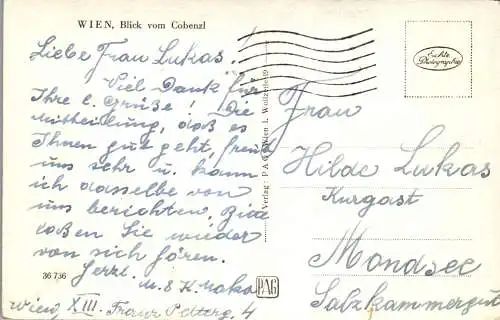 WIEN, Blick vom Cobenzl
Liebe Frau Lukas!
Viel Dank für
Ihre l. Grüße! Die
Mitteilung, daß es
Ihnen gut geht, freut
uns sehr u. kann
ich dasselbe von
uns berichten. Bitte
loßen Sie wieder
von sich hören.
Herzl.
36 736
Wien XIII.
4
Verlag: P A G Wien I.
PAG
Echte
Photographie
Frau
Hilde Lukas
Kurgast
Mondsee
Salzkammergut